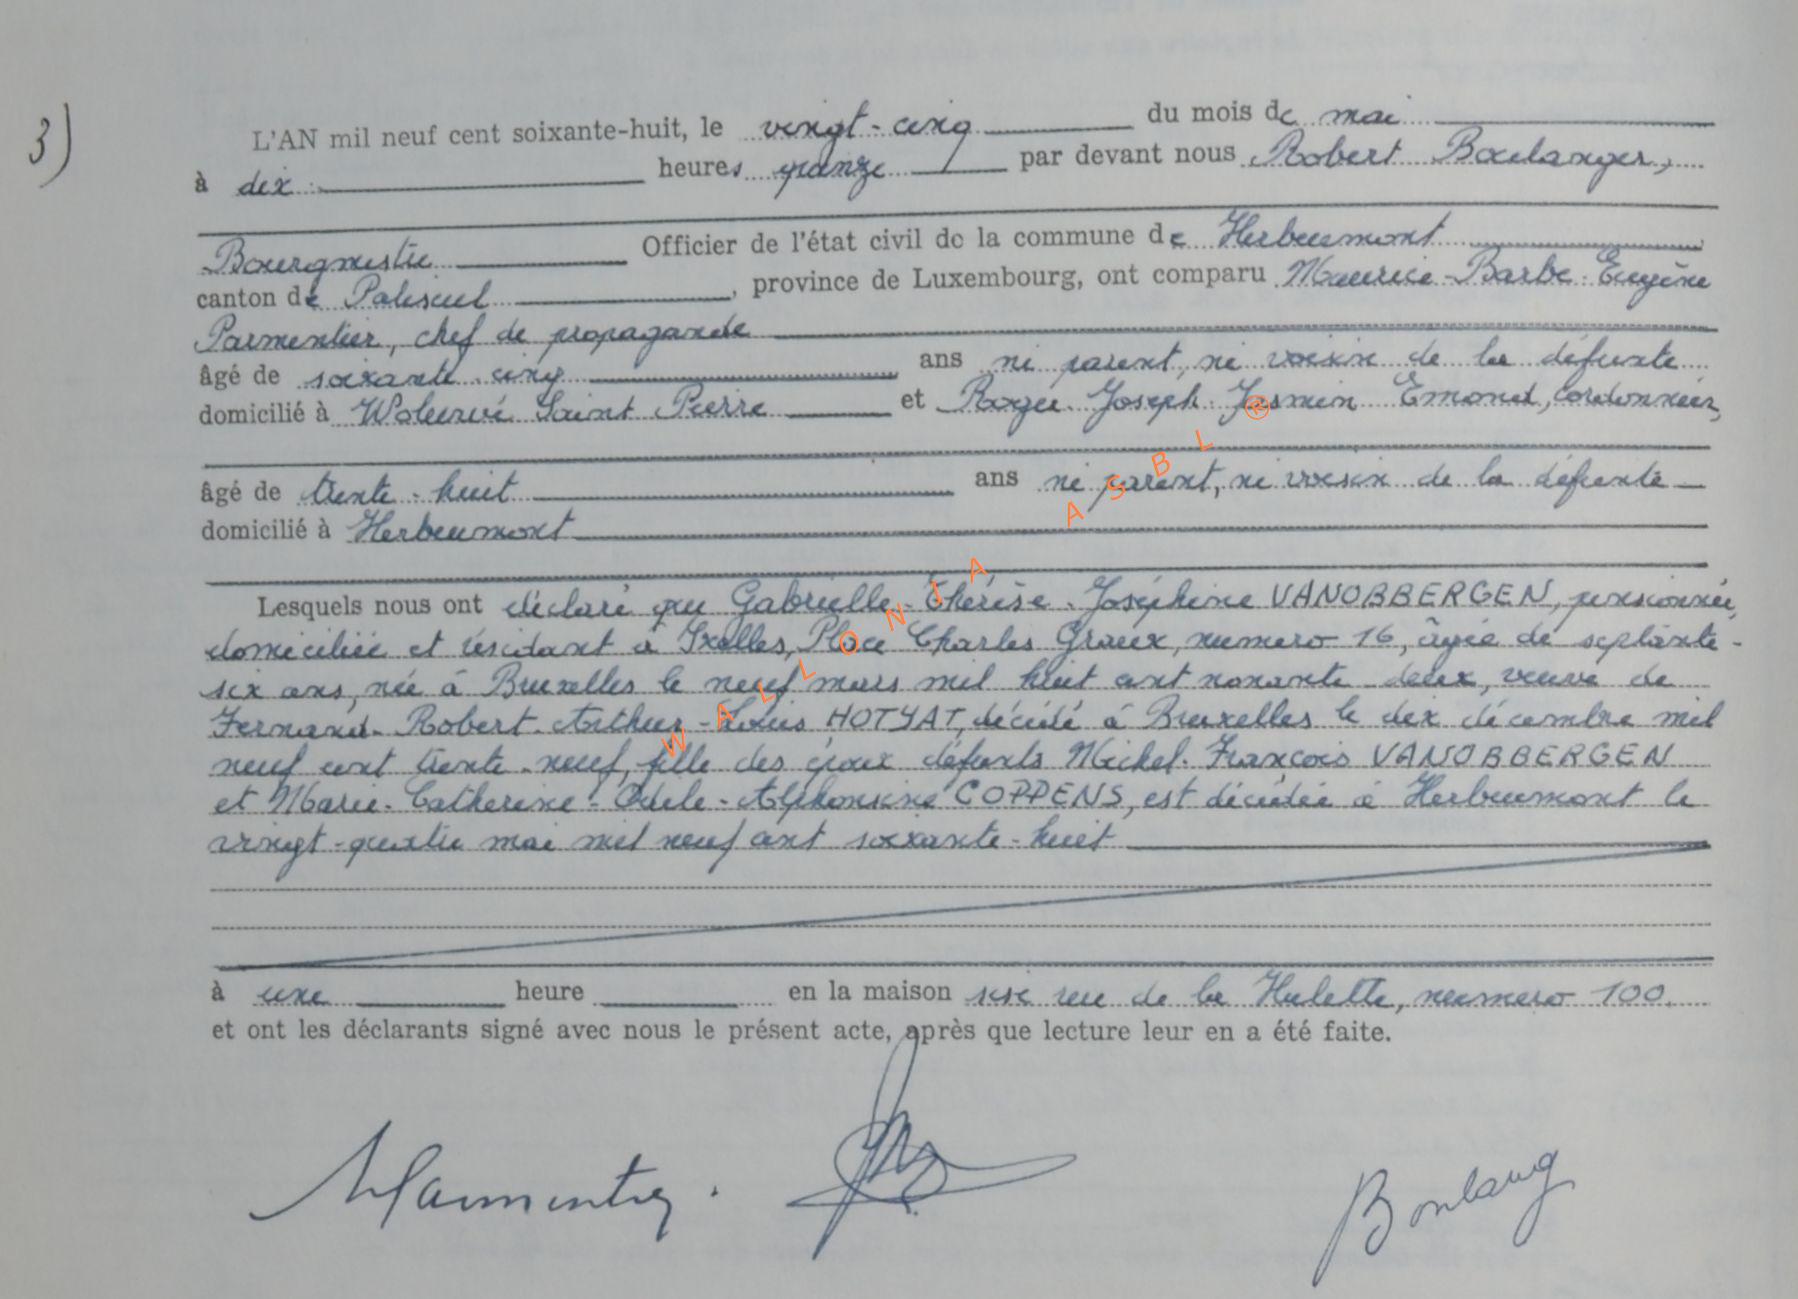 3)
L'AN mil neuf cent soixante-huit, le vingt-cinq du mois de mai
à dix heures quinze par devant nous Robert Boulanger,
Bourgmestre Officier de l'état civil de la commune de Herbeumont
canton de Paliseul, province de Luxembourg, ont comparu Maurice-Barbe-Eugène
Parmentier, chef de propagande
âgé de soixante-cinq ans ni parent, ni voisin de la défunte
domicilié à Woluwé Saint Pierre et Roger-Joseph-Jasmin Emond, cordonnier,
âgé de trente-huit ans ni parent, ni voisin de la défunte
domicilié à Herbeumont
Lesquels nous ont déclaré que Gabrielle-Thérèse-Joséphine VANOBBERGEN, pensionnée,
domiciliée et résidant à Ixelles, Place Charles Graux, numéro 16, âgée de septante-
six ans, née à Bruxelles le neuf mars mil huit cent nonante-deux, veuve de
Fernand-Robert-Arthur-Louis HOTYAT, décédé à Bruxelles le dix décembre mil
neuf cent trente-neuf, fille des époux défunts Michel-François VANOBBERGEN
et Marie-Catherine-Odile-Alphonsine COPPENS, est décédée à Herbeumont le
vingt-quatre mai mil neuf cent soixante-huit
à une heure en la maison sise rue de la Hulette, numéro 100.
et ont les déclarants signé avec nous le présent acte, après que lecture leur en a été faite.
WALLONIA ASBL ®